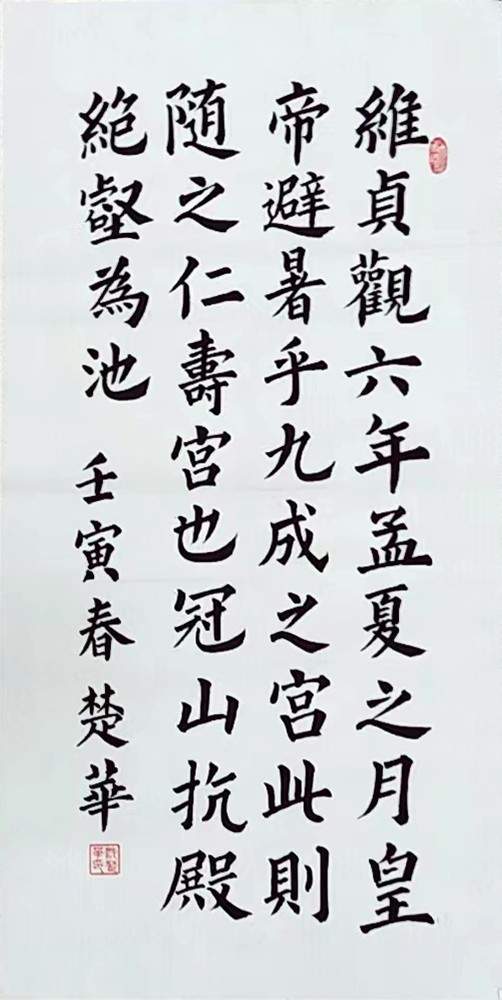 維貞觀六年孟夏之月皇
帝避暑乎九成之宮此則
随之仁壽宮也冠山抗殿
絶壑為池 壬寅春楚華